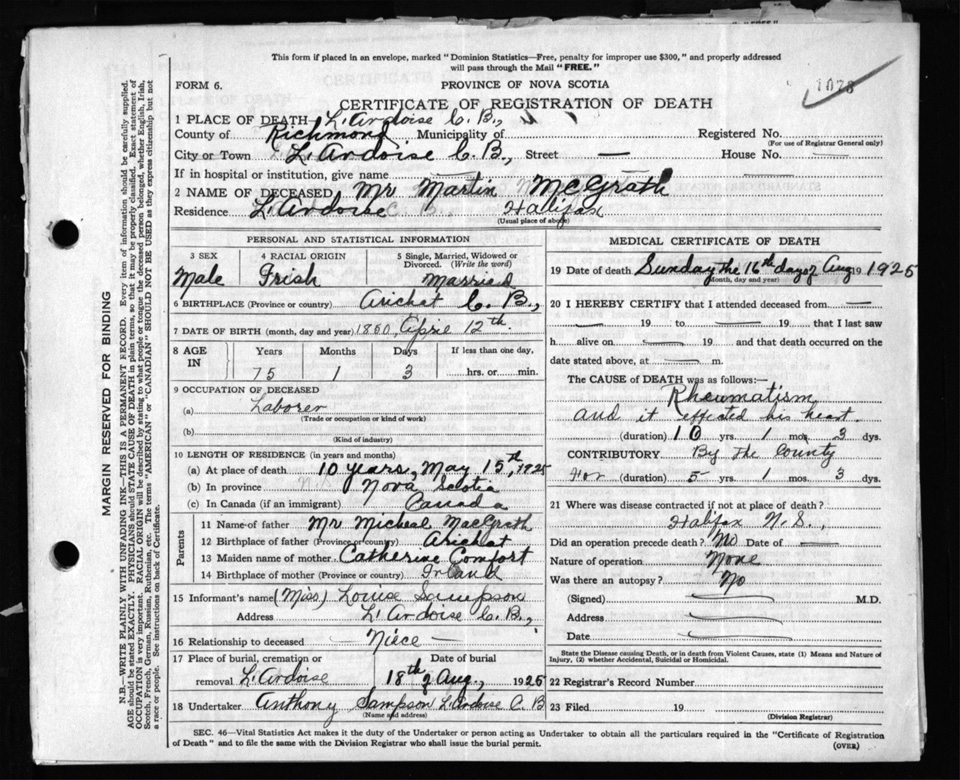 This form if placed in an envelope, marked "Dominion Statistics—Free, penalty for improper use $300," and properly addressed
will pass through the Mail "FREE."
FORM 6.
PROVINCE OF NOVA SCOTIA
1073
CERTIFICATE OF REGISTRATION OF DEATH
1 PLACE OF DEATH L'Ardoise C.B.,
County of Richmond Municipality of
Registered No.
(For use of Registrar General only)
City or Town L'Ardoise C.B., Street — House No. —
If in hospital or institution, give name —
2 NAME OF DECEASED Mr Martin McGrath
Residence L'Ardoise C. B. Halifax
(Usual place of abode)
PERSONAL AND STATISTICAL INFORMATION
3 SEX 4 RACIAL ORIGIN 5 Single, Married, Widowed or Divorced. (Write the word)
Male Irish Married
6 BIRTHPLACE (Province or country) Arichat C. B.,
7 DATE OF BIRTH (month, day and year) 1850, Aprie 12th.
8 AGE IN Years Months Days If less than one day,
75 1 3 hrs. or min.
9 OCCUPATION OF DECEASED
(a) Laborer
(Trade or occupation or kind of work)
(b)
(Kind of industry)
10 LENGTH OF RESIDENCE (in years and months)
(a) At place of death 10 years, May 15th, 1925
(b) In province Nova Scotia
(c) In Canada (if an immigrant) Canada
Parents
11 Name of father Mr Micheal MacGrath
12 Birthplace of father (Province or country) Arichat
13 Maiden name of mother Catherine Comfort
14 Birthplace of mother (Province or country) Irland
15 Informant's name (Miss) Louise Sampson
Address L'Ardoise C.B.,
16 Relationship to deceased — Niece —
17 Place of burial, cremation or removal L'Ardoise
Date of burial 18th of Aug., 1925
18 Undertaker Anthony Sampson L'Ardoise C. B
(Name and address)
MEDICAL CERTIFICATE OF DEATH
19 Date of death Sunday the 16th day of Aug 19 1925
(Month, day and year)
20 I HEREBY CERTIFY that I attended deceased from —
— 19 — to — 19 — that I last saw
h alive on — 19 — and that death occurred on the
date stated above, at — m.
The CAUSE of DEATH was as follows:—
Rheumatism
and it effected his heart
(duration) 10 yrs. 1 mos. 3 dys.
CONTRIBUTORY By The County
For (duration) 5 yrs. 1 mos. 3 dys.
21 Where was disease contracted if not at place of death?
Halifax N.S.,
Did an operation precede death? No Date of —
Nature of operation None
Was there an autopsy? No
(Signed) — M.D.
Address —
Date —
State the Disease causing Death, or in death from Violent Causes, state (1) Means and Nature of
Injury, (2) whether Accidental, Suicidal or Homicidal.
22 Registrar's Record Number
23 Filed, 19
(Division Registrar)
SEC. 46—Vital Statistics Act makes it the duty of the Undertaker or person acting as Undertaker to obtain all the particulars required in the "Certificate of Registration
of Death" and to file the same with the Division Registrar who shall issue the burial permit.
(OVER)
MARGIN RESERVED FOR BINDING
N.B.—WRITE PLAINLY WITH UNFADING INK—THIS IS A PERMANENT RECORD. Every item of information should be carefully supplied.
AGE should be stated EXACTLY. PHYSICIANS should STATE CAUSE OF DEATH in plain terms, so that it may be properly classified. Exact statement of
OCCUPATION is very important. RACIAL ORIGIN will be described by stating to what people or tongue the deceased person belonged, whether English, Irish,
Scotch, French, German, Russian, Ruthenian, etc. The terms "AMERICAN" or "CANADIAN" SHOULD NOT BE USED as they express citizenship but not
a race or people. See instructions on back of Certificate.